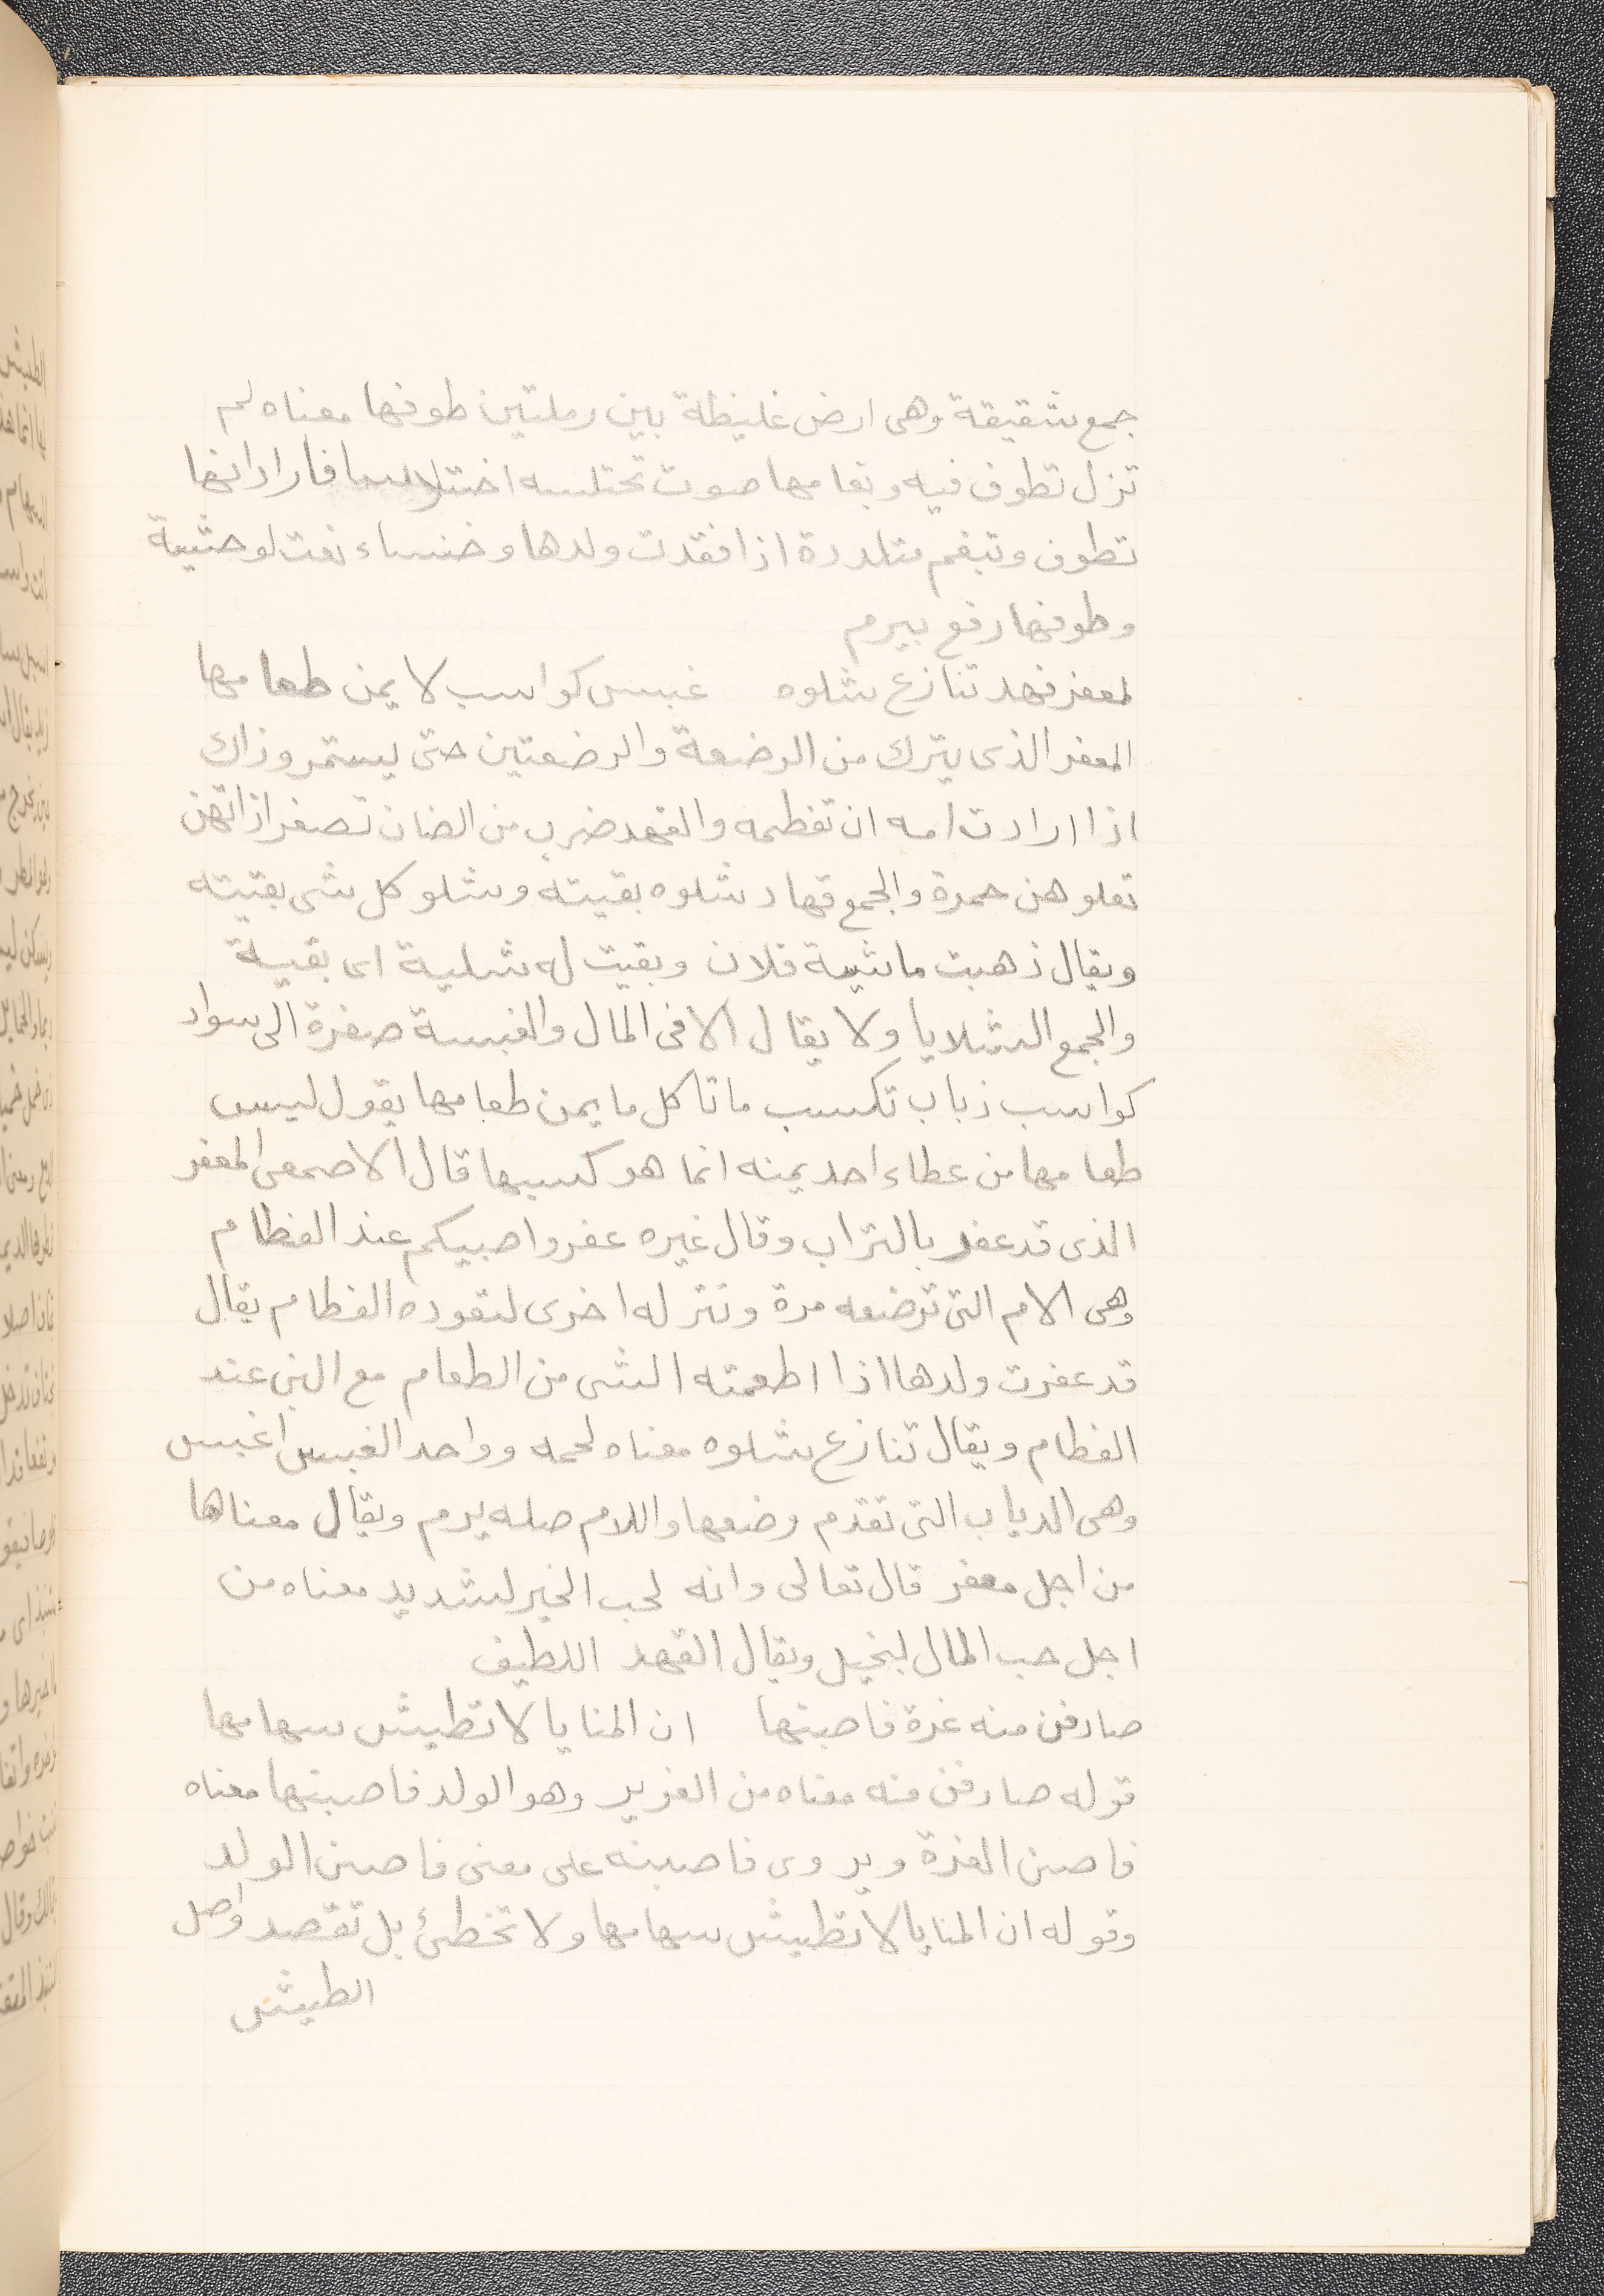 جمع شقيقة وهى ارض غليظة بين رملتين طوفها معناه لم
تزل تطوف فيه وبغامها صوت تختلسه اختلاسا فاراد انها
تطوف وتبغم متلددة اذا فقدت ولدها وخنساء نعت لوحشية
وطوفها رفع بيرم
لمعفر قهد تنازع شلوه غبس كواسب لا يمن طعامها
المعفر الذى يترك من الرضعة والرضعتين حتى يستمر وذاك
اذا ارادت امه ان تفطمه والقهد ضرب من الضان تصغر اذانهن
تعلوهن حمرة والجمع قهاد شلوه بقيته وشلو كل شى بقيته
ويقال ذهبت ماشية فلان وبقيت له شلية اى بقية
والجمع الشلايا ولا يقال الا فى المال والغبسة صفرة الى سواد
كواسب ذباب تكسب ما تاكل ما يمن طعامها يقول ليس
طعامها من عطاء احد يمنه انما هو كسبها قال الاصمعى المعفر
الذى قد عفر بالتراب وقال غيره عفروا صبيكم عند الفطام
وهى الام التى ترضعه مرة وتتر له اخرى لتعوده الفطام يقال
قد عفرت ولدها اذا اطعمته الشى من الطعام مع البن عند
الفطام ويقال تنازع شلوه معناه لحمه وواحد الغبس اغبس
وهى الدياب التى تقدم وضعها واللام صله يرم ويقال معناها
من اجل معفر قال تعالى وانه لحب الخير لشديد معناه من
اجل حب المال لبخيل ويقال القهد اللطيف
صادفن منه غرة فاصبنها ان المنايا لا تطيش سهامها
قوله صادفن منه معناه من الغرير وهو الولد فاصبنها معناه
فاصبن الغرة ويروى فاصبنه على معنى فاصبن الولد
وقوله ان المنايا لا تطيش سهامها ولا تخطئ بل تقصد واصل
الطيش